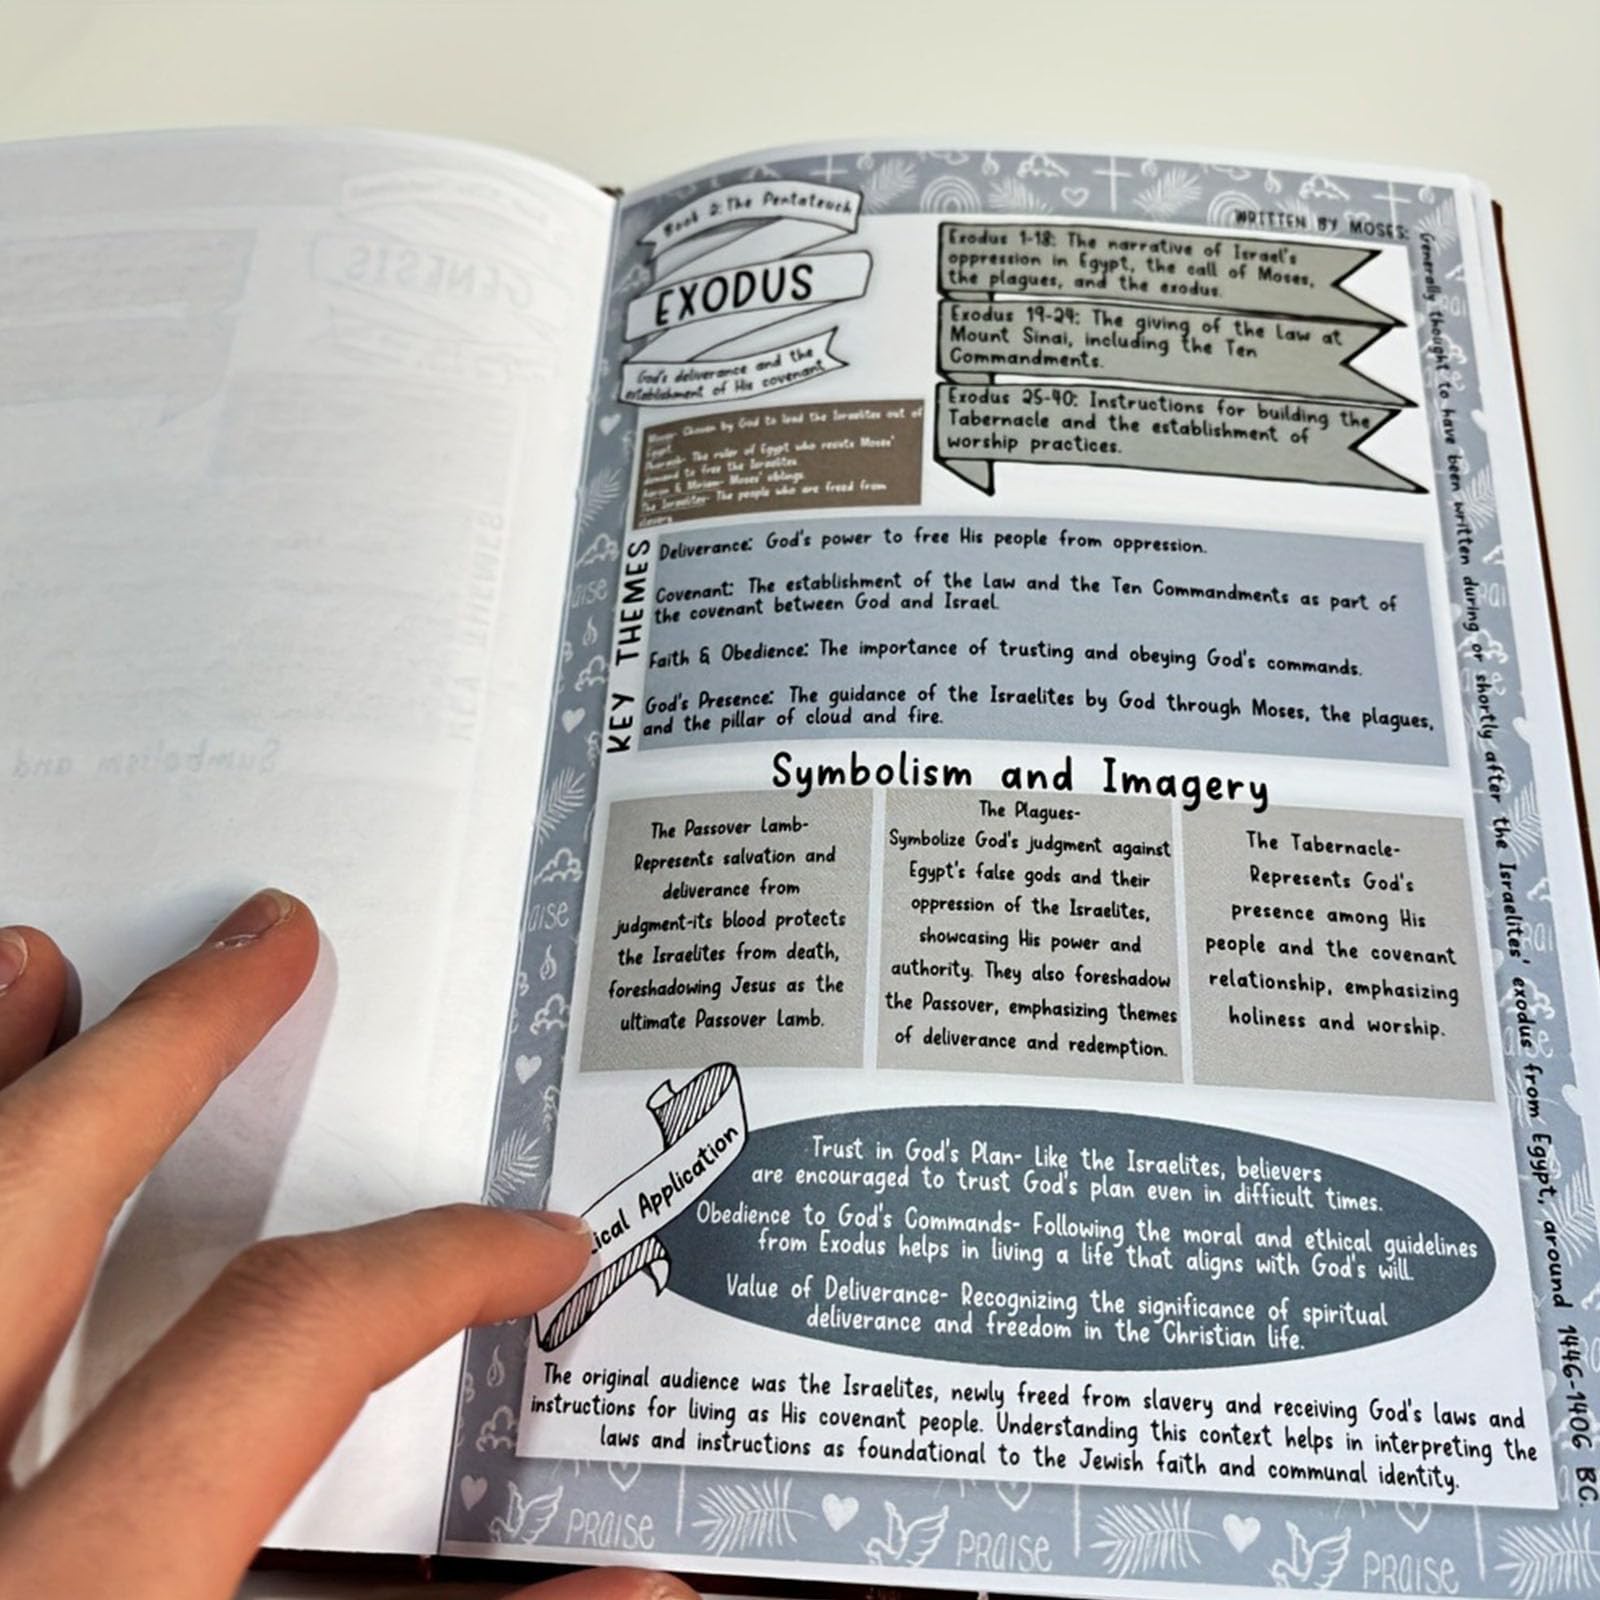 Book 2: The Pentateuch
EXODUS
God's deliverance and the
establishment of His covenant
WRITTEN BY MOSES:
Generally thought to have been written during or shortly after the Israelites' exodus from Egypt, around 1446-1406 BC.
Exodus 1-18: The narrative of Israel's
oppression in Egypt, the call of Moses,
the plagues, and the exodus.
Exodus 19-24: The giving of the Law at
Mount Sinai, including the Ten
Commandments.
Exodus 25-40: Instructions for building the
Tabernacle and the establishment of
worship practices.
Moses- Chosen by God to lead the Israelites out of
Egypt.
Pharaoh- The ruler of Egypt who resists Moses'
demand to free the Israelites
Aaron & Miriam- Moses' siblings
The Israelites- The people who are freed from
slavery
KEY THEMES
Deliverance: God's power to free His people from oppression.
Covenant: The establishment of the Law and the Ten Commandments as part of
the covenant between God and Israel.
Faith & Obedience: The importance of trusting and obeying God's commands.
God's Presence: The guidance of the Israelites by God through Moses, the plagues,
and the pillar of cloud and fire.
Symbolism and Imagery
The Passover Lamb-
Represents salvation and
deliverance from
judgment-its blood protects
the Israelites from death,
foreshadowing Jesus as the
ultimate Passover Lamb.
The Plagues-
Symbolize God's judgment against
Egypt's false gods and their
oppression of the Israelites,
showcasing His power and
authority. They also foreshadow
the Passover, emphasizing themes
of deliverance and redemption.
The Tabernacle-
Represents God's
presence among His
people and the covenant
relationship, emphasizing
holiness and worship.
ical Application
Trust in God's Plan- Like the Israelites, believers
are encouraged to trust God's plan even in difficult times.
Obedience to God's Commands- Following the moral and ethical guidelines
from Exodus helps in living a life that aligns with God's will.
Value of Deliverance- Recognizing the significance of spiritual
deliverance and freedom in the Christian life.
The original audience was the Israelites, newly freed from slavery and receiving God's laws and
instructions for living as His covenant people. Understanding this context helps in interpreting the
laws and instructions as foundational to the Jewish faith and communal identity.
PRAISE PRAISE PRAISE
GENESIS
KEY THEMES
Symbolism and